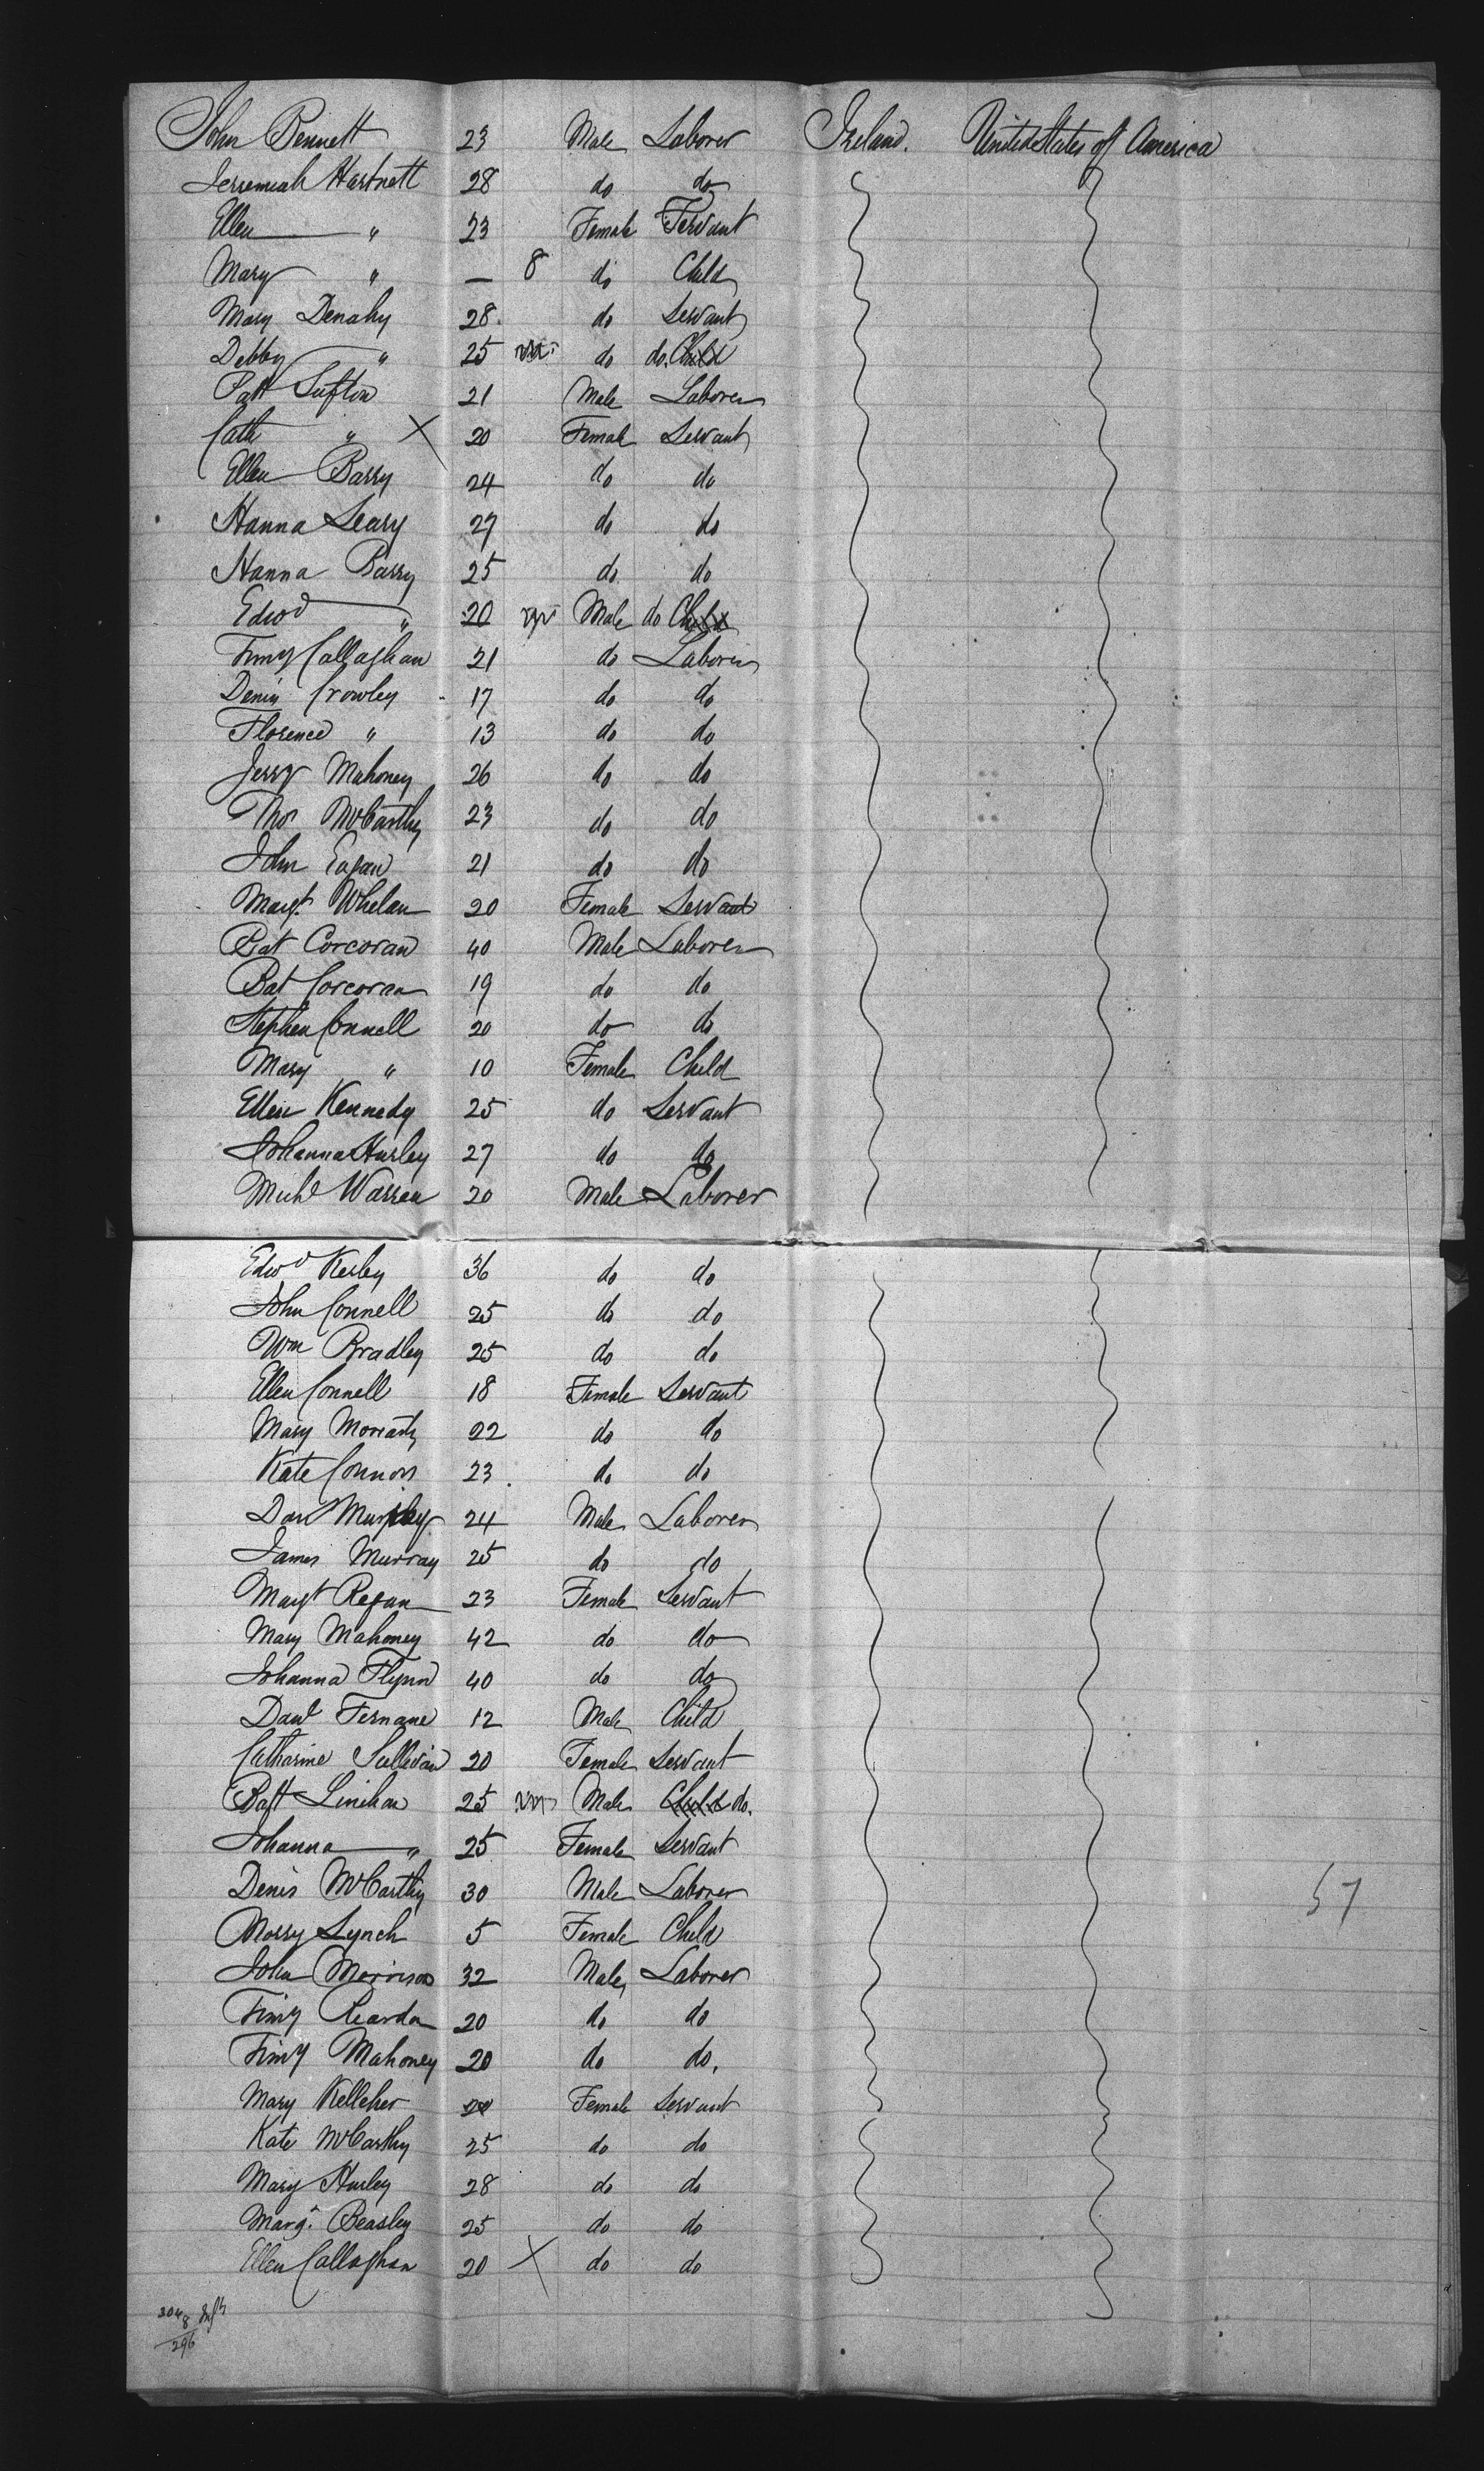 John Bennett 23 Male Laborer Ireland. United States of America
Jeremiah Hartnett 28 do do
Ellen " 23 Female Servant
Mary " — 8 do Child
Mary Denahy 28. do Servant
Debby " 25 do do. Child
Patt Sufton 21 Male Laborer
Cath " X 20 Female Servant
Ellen Barry 24 do do
Hanna Leary 27 do do
Hanna Barry 25 do do
Edwd " 20 Male do Child
Timy Callaghan 21 do Laborer
Denis Crowley 17 do do
Florence " 13 do do
Jerry Mahoney 26 do do
Thos McCarthy 23 do do
John Eagan 21 do do
Margt. Whelan 20 Female Servant
Pat Corcoran 40 Male Laborer
Bat Corcoran 19 do do
Stephen Connell 20 do do
Mary " 10 Female Child
Ellen Kennedy 25 do Servant
Johanna Hurley 27 do do
Michl Warren 20 Male Laborer
Edwd Kerby 36 do do
John Connell 25 do do
Wm Bradley 25 do do
Ellen Connell 18 Female Servant
Mary Moriarty 22 do do
Kate Connors 23 do do
Dan Murphy 24 Male Laborer
James Murray 25 do do
Margt Regan 23 Female Servant
Mary Mahoney 42 do do
Johanna Flynn 40 do do
Davd Fernane 12 Male Child
Catharine Sullivan 20 Female Servant
Batt Linihan 25 Male Child do.
Johanna " 25 Female Servant
Denis McCarthy 30 Male Laborer
Morry Lynch 5 Female Child
John Morrison 32 Male Laborer
Timy Reardon 20 do do
Timy Mahoney 20 do do.
Mary Kelleher 20 Female Servant
Kate McCarthy 25 do do
Mary Hurley 28 do do
Margt. Beasley 25 do do
Ellen Callaghan 20 X do do
57
304
8 Infts
296